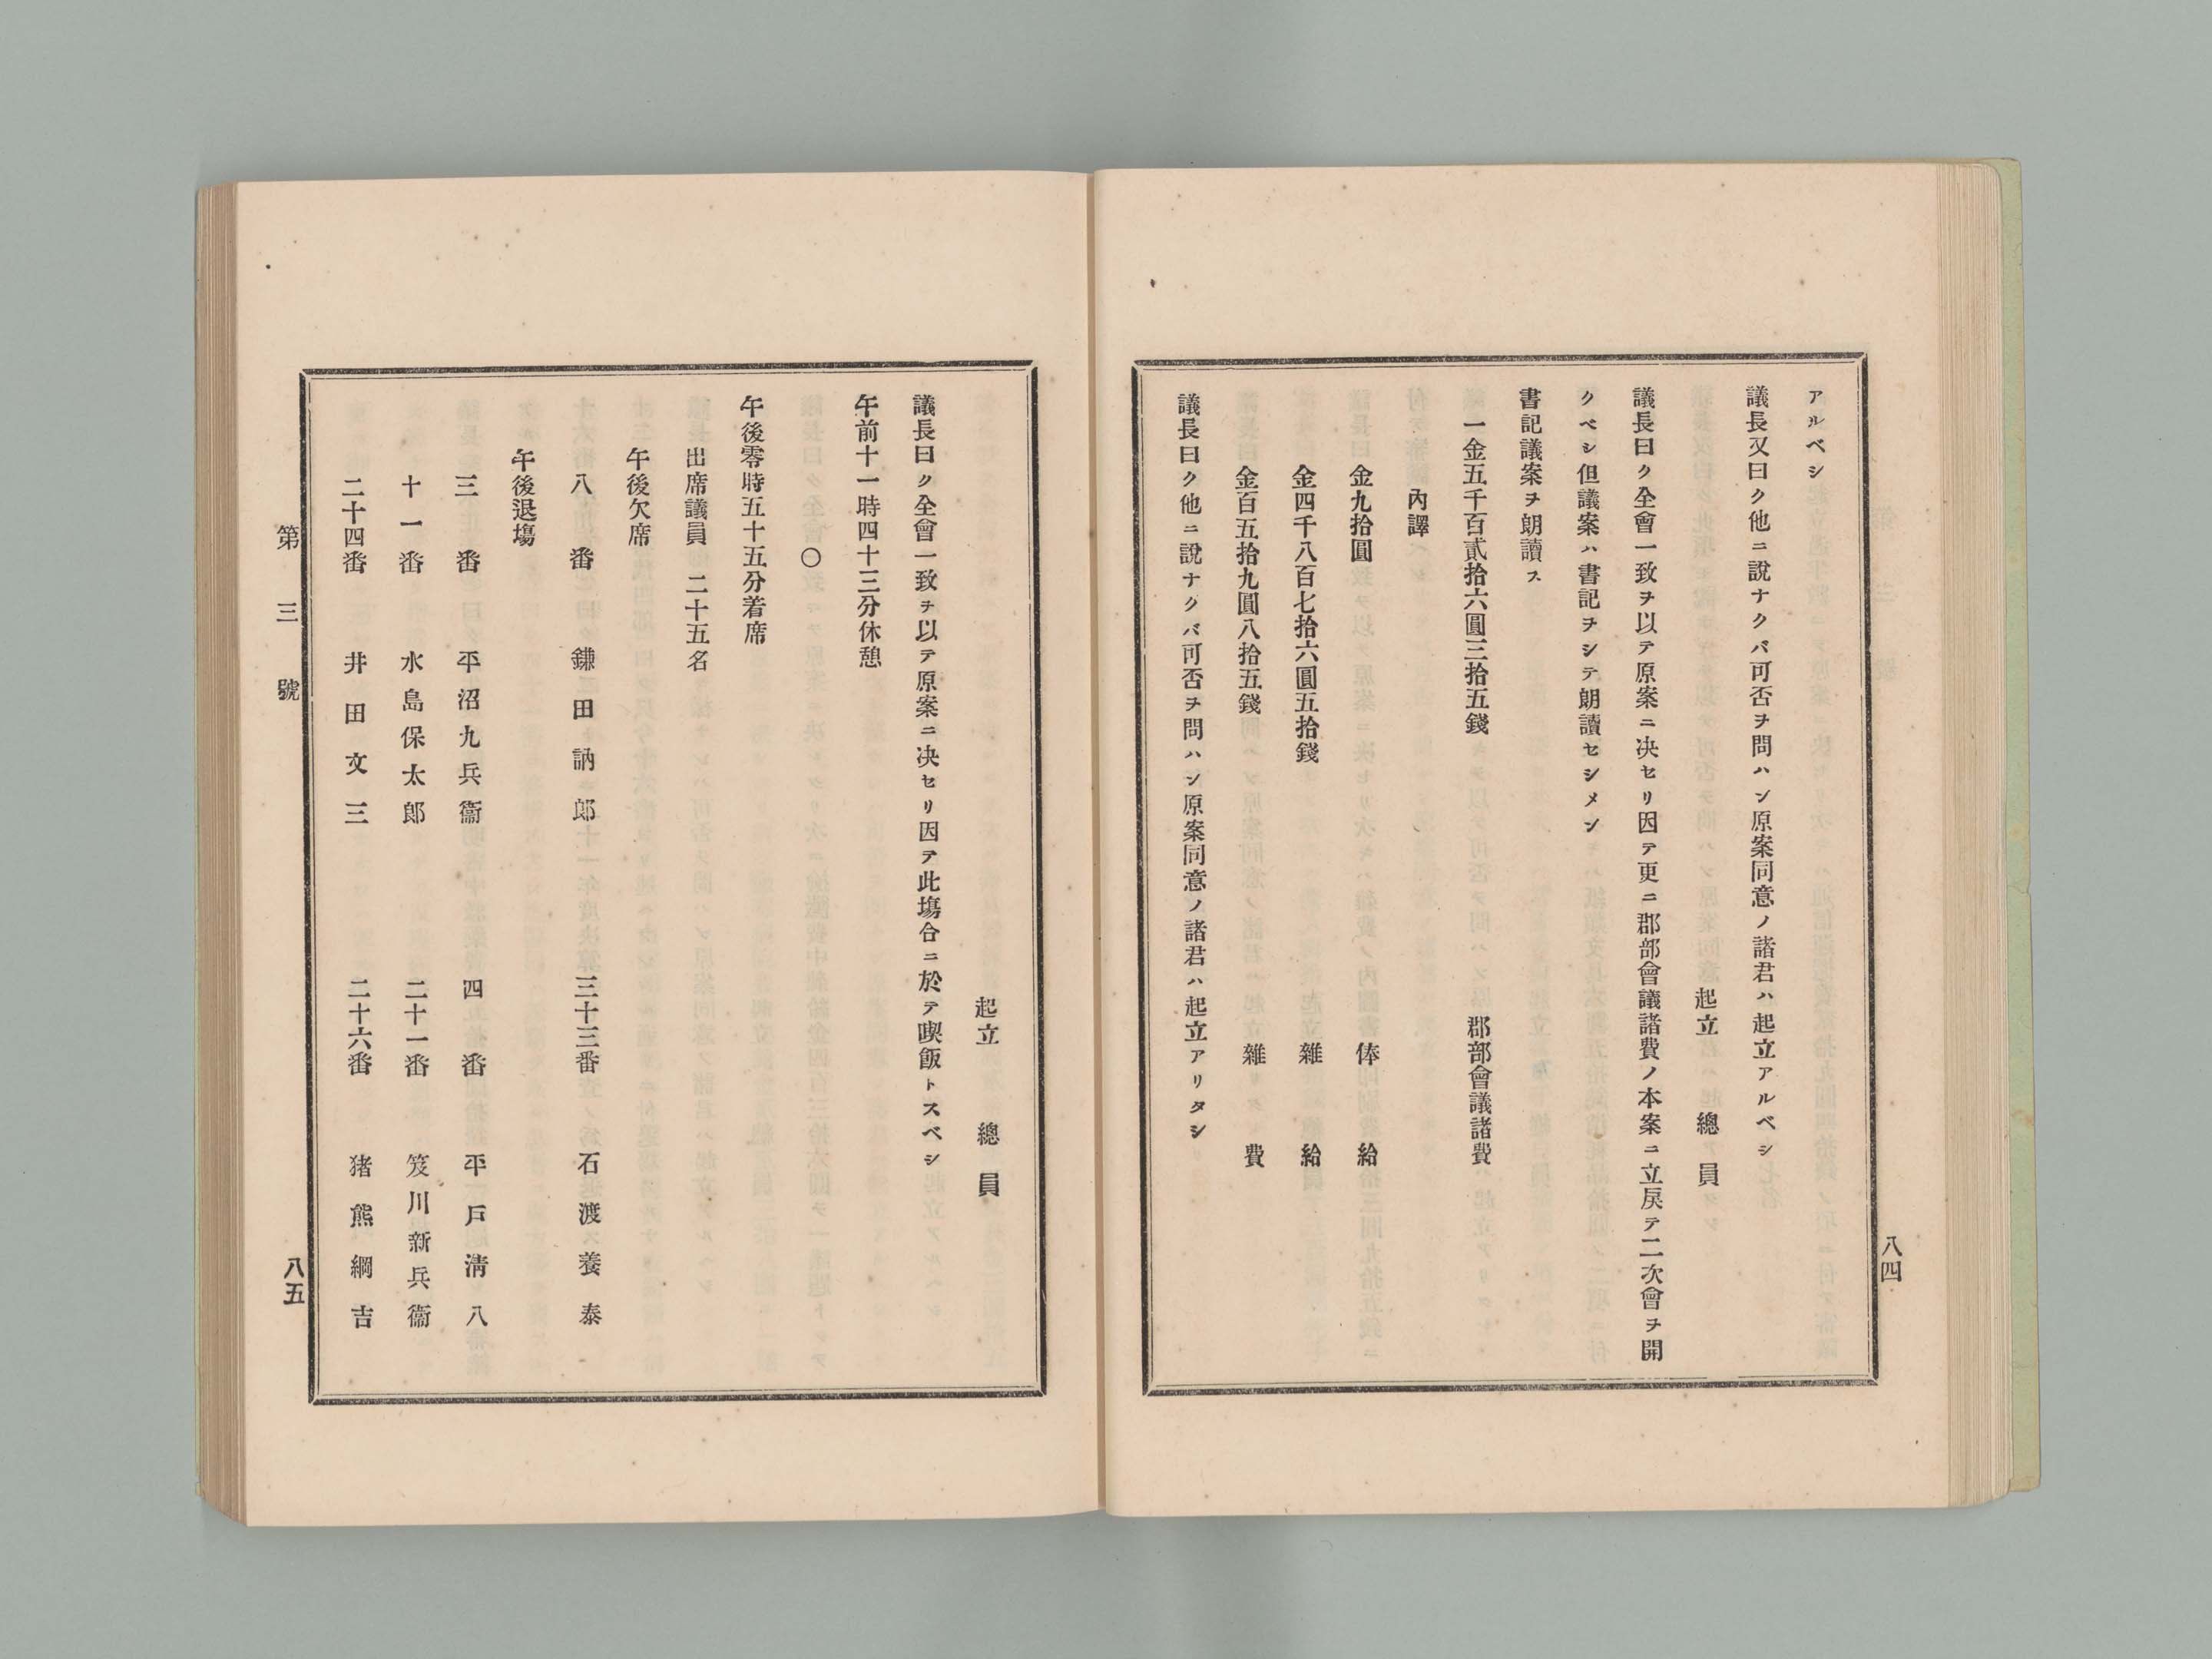 アルベシ
議長又曰ク他ニ說ナクバ可否ヲ問ハン原案同意ノ諸君ハ起立アルベシ
起立 總員
議長曰ク全會一致ヲ以テ原案ニ决セリ因テ更ニ郡部會議諸費ノ本案ニ立戾テ二次會ヲ開
クベシ但議案ハ書記ヲシテ朗讀セシメン
書記議案ヲ朗讀ス
一金五千百貳拾六圓三拾五錢 郡部會議諸費
內譯
金九拾圓 俸給
金四千八百七拾六圓五拾錢 雜給
金百五拾九圓八拾五錢 雜費
議長曰ク他ニ說ナクバ可否ヲ問ハン原案同意ノ諸君ハ起立アリタシ
八四
起立 總員
議長曰ク全會一致ヲ以テ原案ニ决セリ因テ此塲合ニ於テ喫飯トスベシ
午前十一時四十三分休憩
○
午後零時五十五分着席
出席議員 二十五名
午後欠席
八番 鎌田訥郎 三十三番 石渡養泰
午後退塲
三番 平沼九兵衞 四番 平戶淸八
十一番 水島保太郎 二十一番 笈川新兵衞
二十四番 井田文三 二十六番 猪熊綱吉
第三號
八五